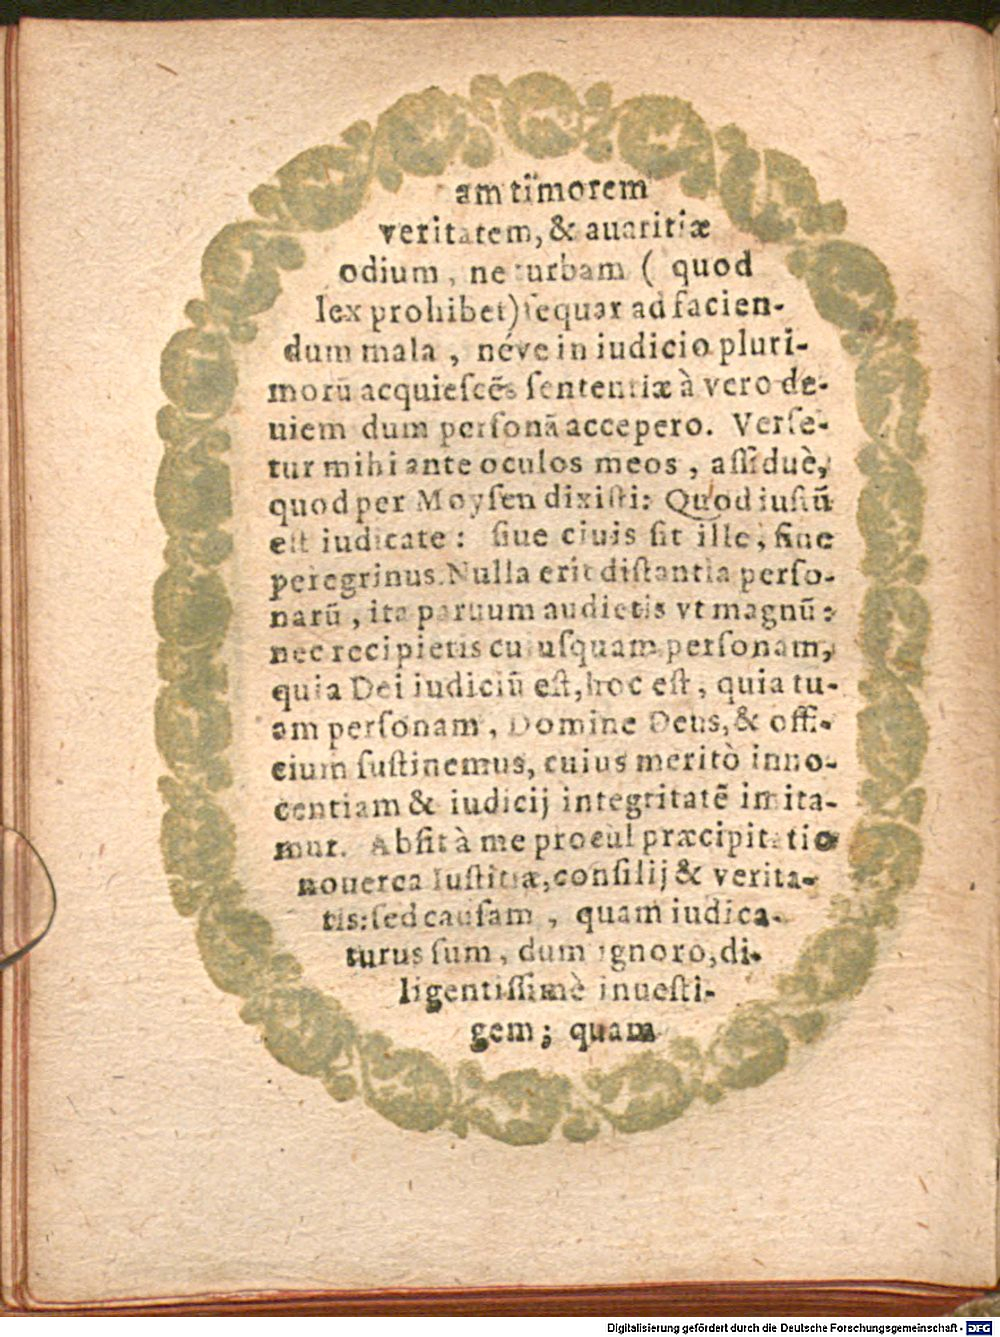 am timorem
veritatem, & auaritiæ
odium, ne turbam ( quod
lex prohibet) ſequar ad facien-
dum mala, néve in iudicio pluri-
morũ acquieſcẽs ſententiæ à vero de-
uiem dum perſonã accepero. Verſe-
tur mihi ante oculos meos, aſſiduè,
quod per Moyſen dixiſti: Quod iuſtũ
eſt iudicate: ſiue ciuis ſit ille, ſiue
peregrinus. Nulla erit diſtantia perſo-
narũ, ita paruum audietis vt magnũ:
nec recipietis cuiuſquam perſonam,
quia Dei iudiciũ eſt, hoc eſt, quia tu-
am perſonam, Domine Deus, & offi-
cium ſuſtinemus, cuius meritò inno-
centiam & iudicij integritatẽ imita-
mur. Abſit à me procul præcipitatio
nouerca Iuſtitiæ, conſilij & verita-
tis: ſed cauſam, quam iudica-
turus ſum, dum ignoro, di-
ligentiſſimè inueſti-
gem; quam
Digitalisierung gefördert durch die Deutsche Forschungsgemeinschaft - DFG